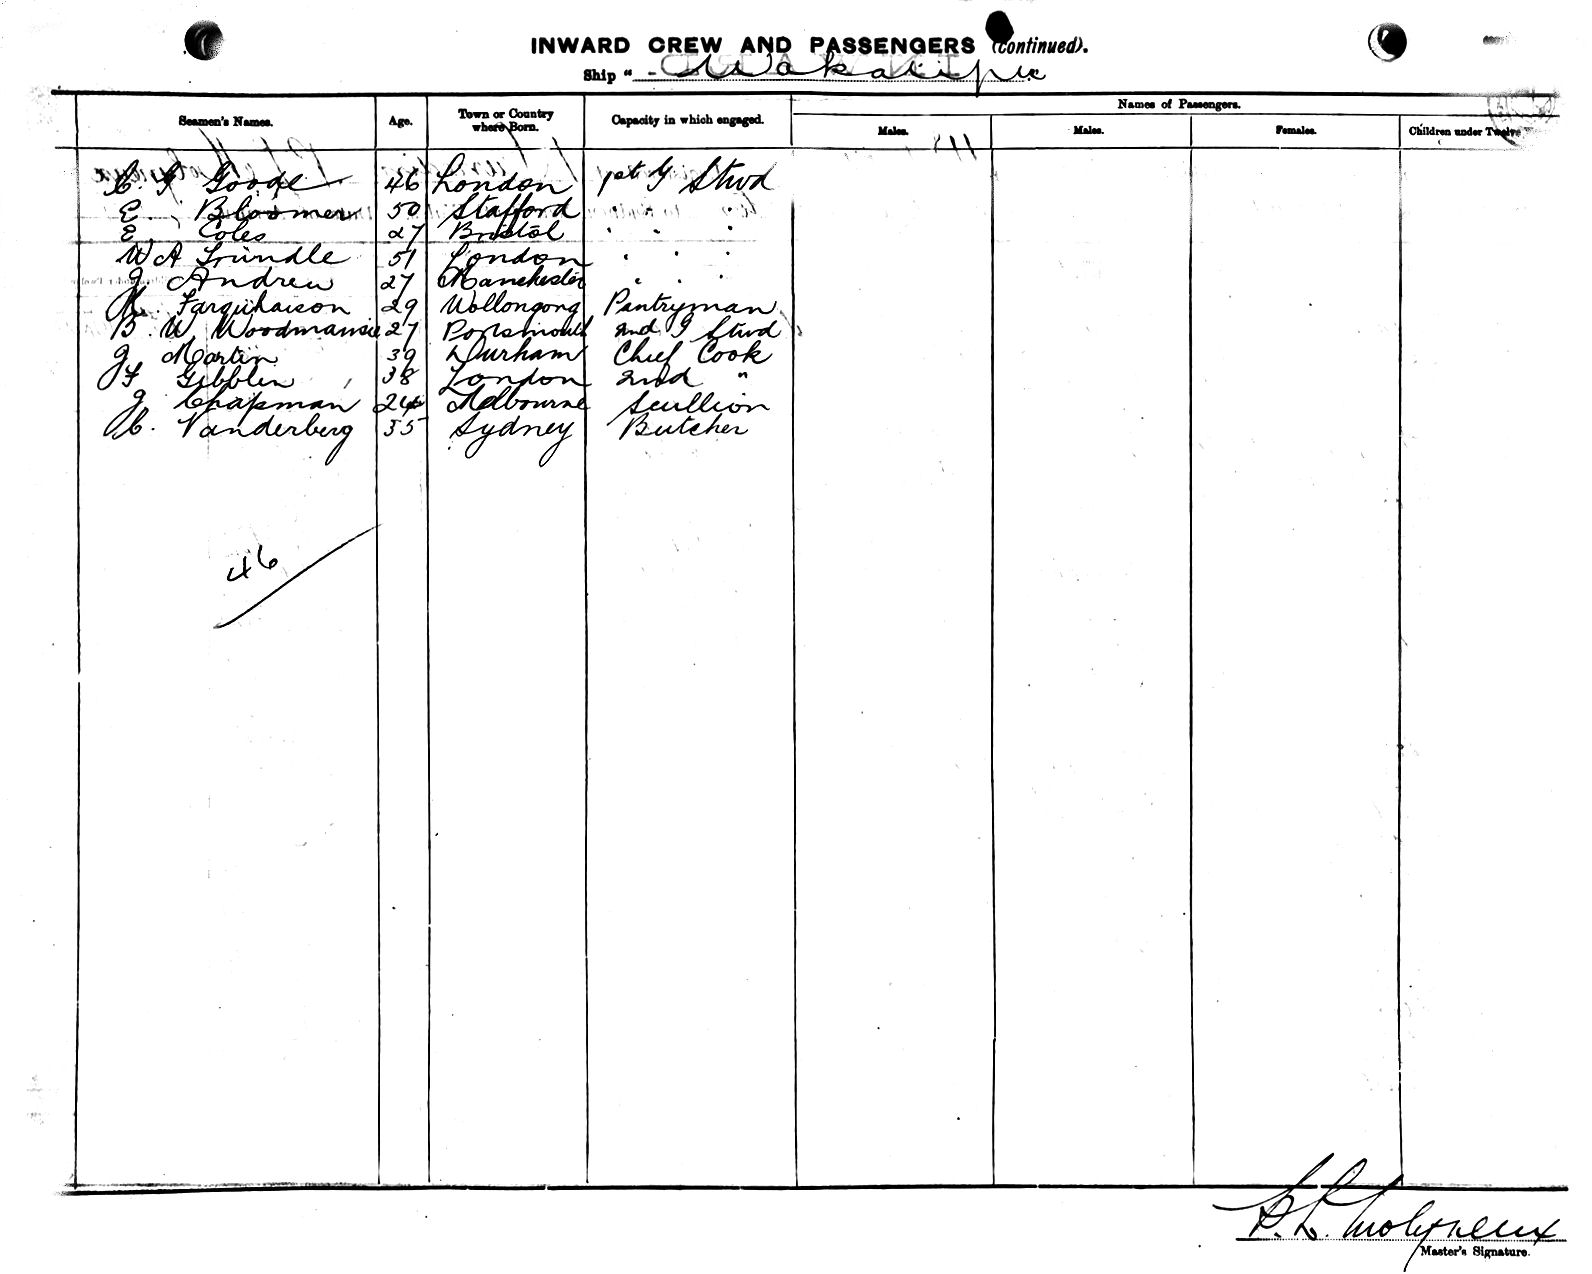 INWARD CREW AND PASSENGERS (Continued).
Ship "Wakatipu
Seamen's Names. Age. Town or Country where Born. Capacity in which engaged. Names of Passengers.
Males. Males. Females. Children under Twelve
C. G Goode 46 London 1st G Stwd
E. Bloomer 50 Stafford " " "
E Coles 27 Bristol " " "
W A Trindle 51 London " " "
J Andrew 27 Manchester " " "
Farquharson 29 Wollongong Pantryman
B. W Woodmansie 27 Portsmouth 2nd G Stwd
J Martin 39 Durham Chief Cook
F Gibblin 38 London 2nd "
J Chapman 24 Melbourne Scullion
C. Vanderberg 35 Sydney Butcher
46
Molyneux
Master's Signature.